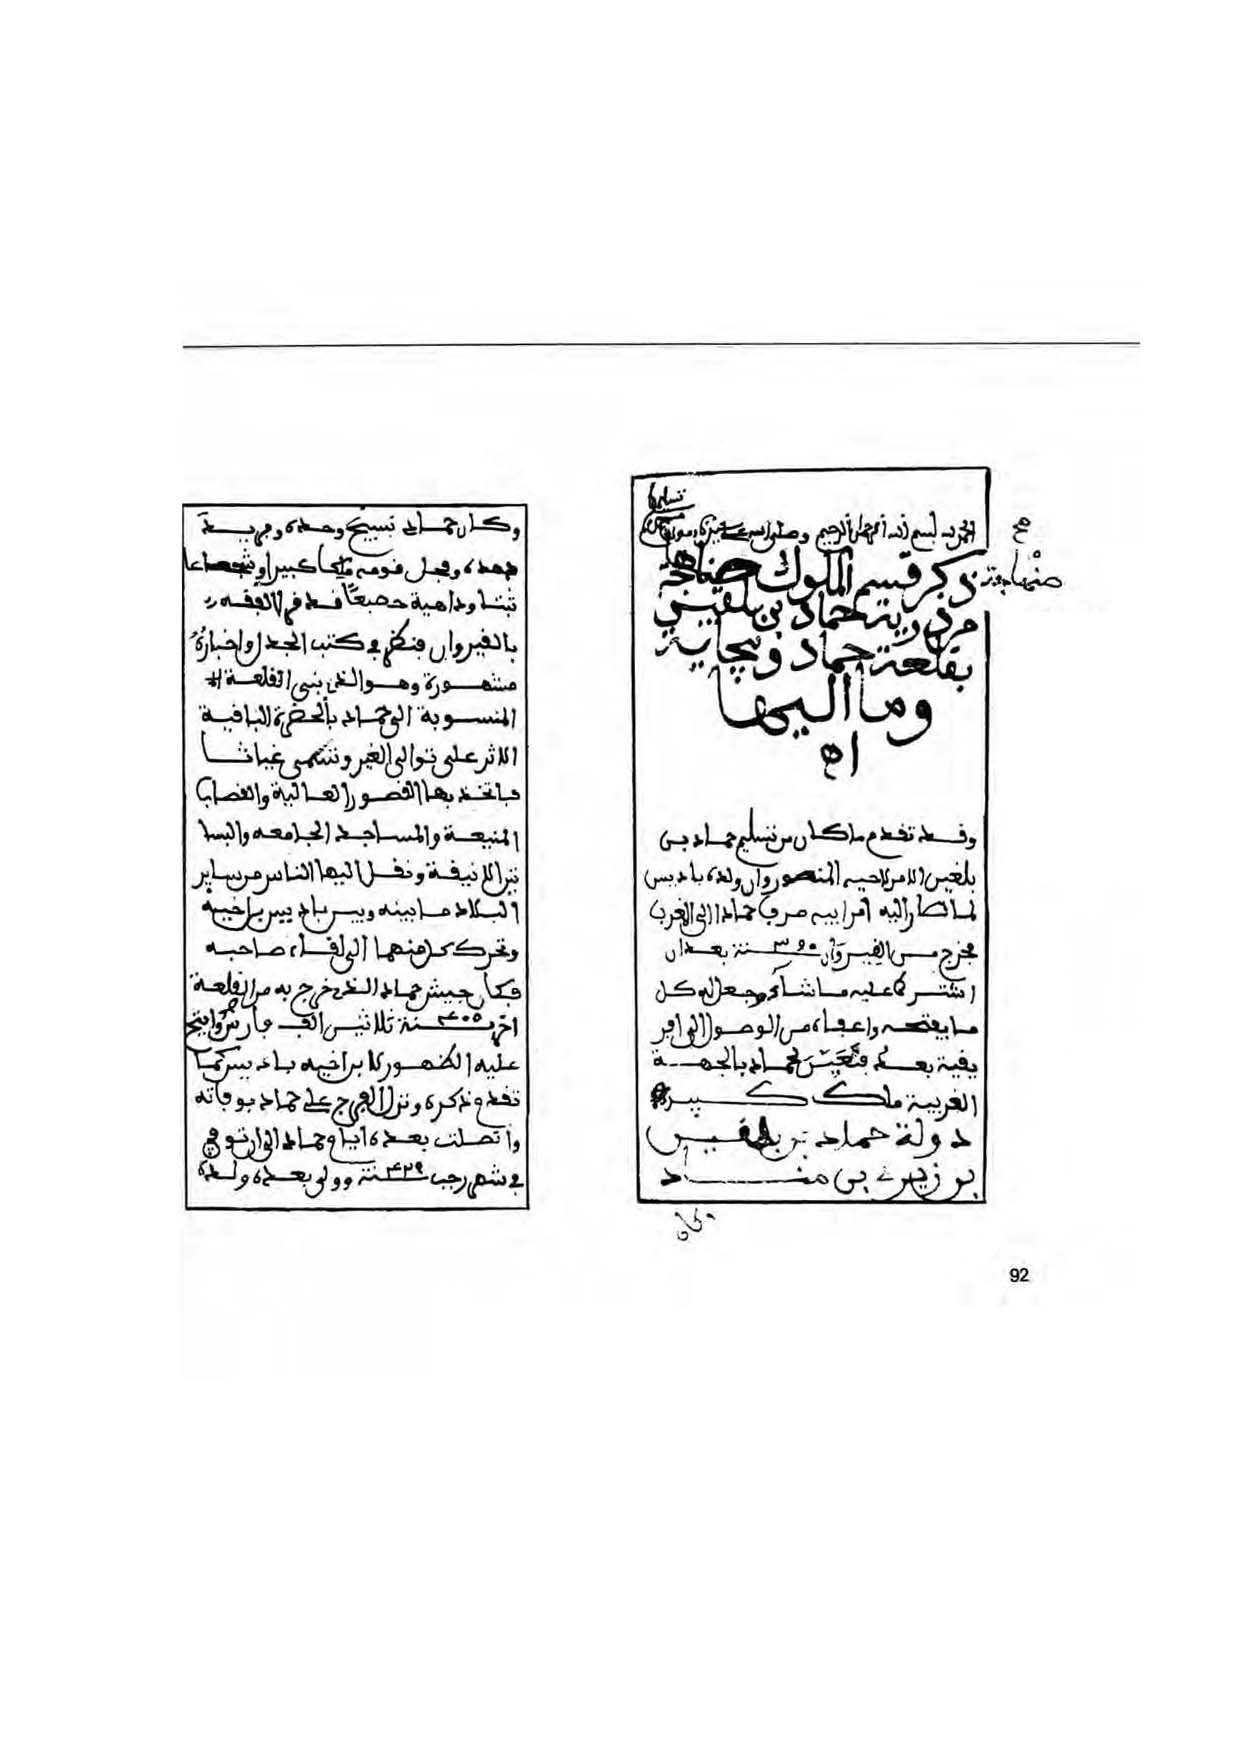 وبه نستعين
الحمد لله بسم الله الرحمن الرحيم وصلى الله على
ذكر قسم الملوك صناهجة
من ذرية حماد بن بلقين
بقلعة حماد وبجاية
وما اليها
اه
وقد تقدم ما كان من تسليم حماد بن
بلغين الامر لاخيه المنصور وان ولده باديس
لما صار اليه امر ابيه صرف حمادا الى الغرب
فخرج من القيروان سنة ٣٩٥ بعد ان
اشترط عليه ما شاء وجعل له كل
ما يفتحه واعفاه من الوصول الى افر
يقية بعد فتعين لحماد بالجهة
الغربية ملك كبير
دولة حماد بن بلقين
بن زيري بن مناد
وكان
وكان حماد نسيج وحده وفريد
عهده وفحل قومه ملكا كبيرا وشجاعا
ثبتا وداهية حصيفا قد قرا الفقه
بالقيروان ونظر في كتب الجدل واخباره
مشهورة وهو الذي بنى القلعة
المنسوبة الى حماد بالحضرة الباقية
الاثر على توالي الغير وتسمى
فاتخذ بها القصور العالية والقصاب
المنيعة والمساجد الجامعة والبسا
تين الانيفة ونقل اليها الناس من ساير
البلاد ما بينه وبين باديس بن اخيه
وتحرك كل منهما الى لقاء صاحبه
فكان جيش حماد الذي خرج به من القلعة
اخر سنة ٤٠٥ ثلاثين الف فارس
عليه الظهور لابن اخيه باديس كما
تقدم ذكره ونزل الفرج على حماد بوفاته
واتصلت بعده ايام حماد الى ان توفي
في شهر رجب سنة ٤٢٩ وولي بعده ولده
92